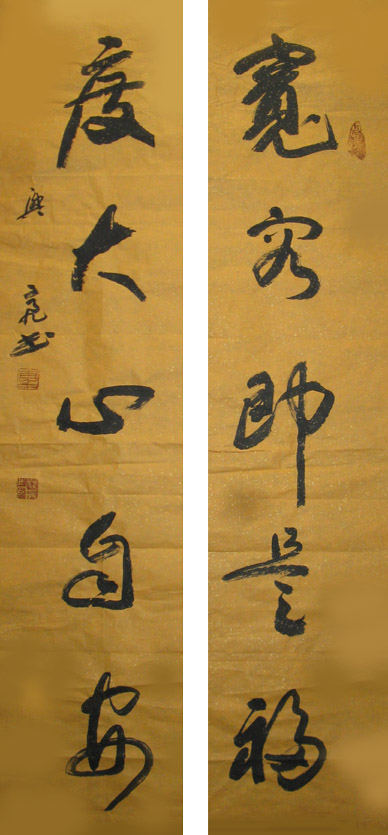 寬容即是福
度大心自安
興亮书